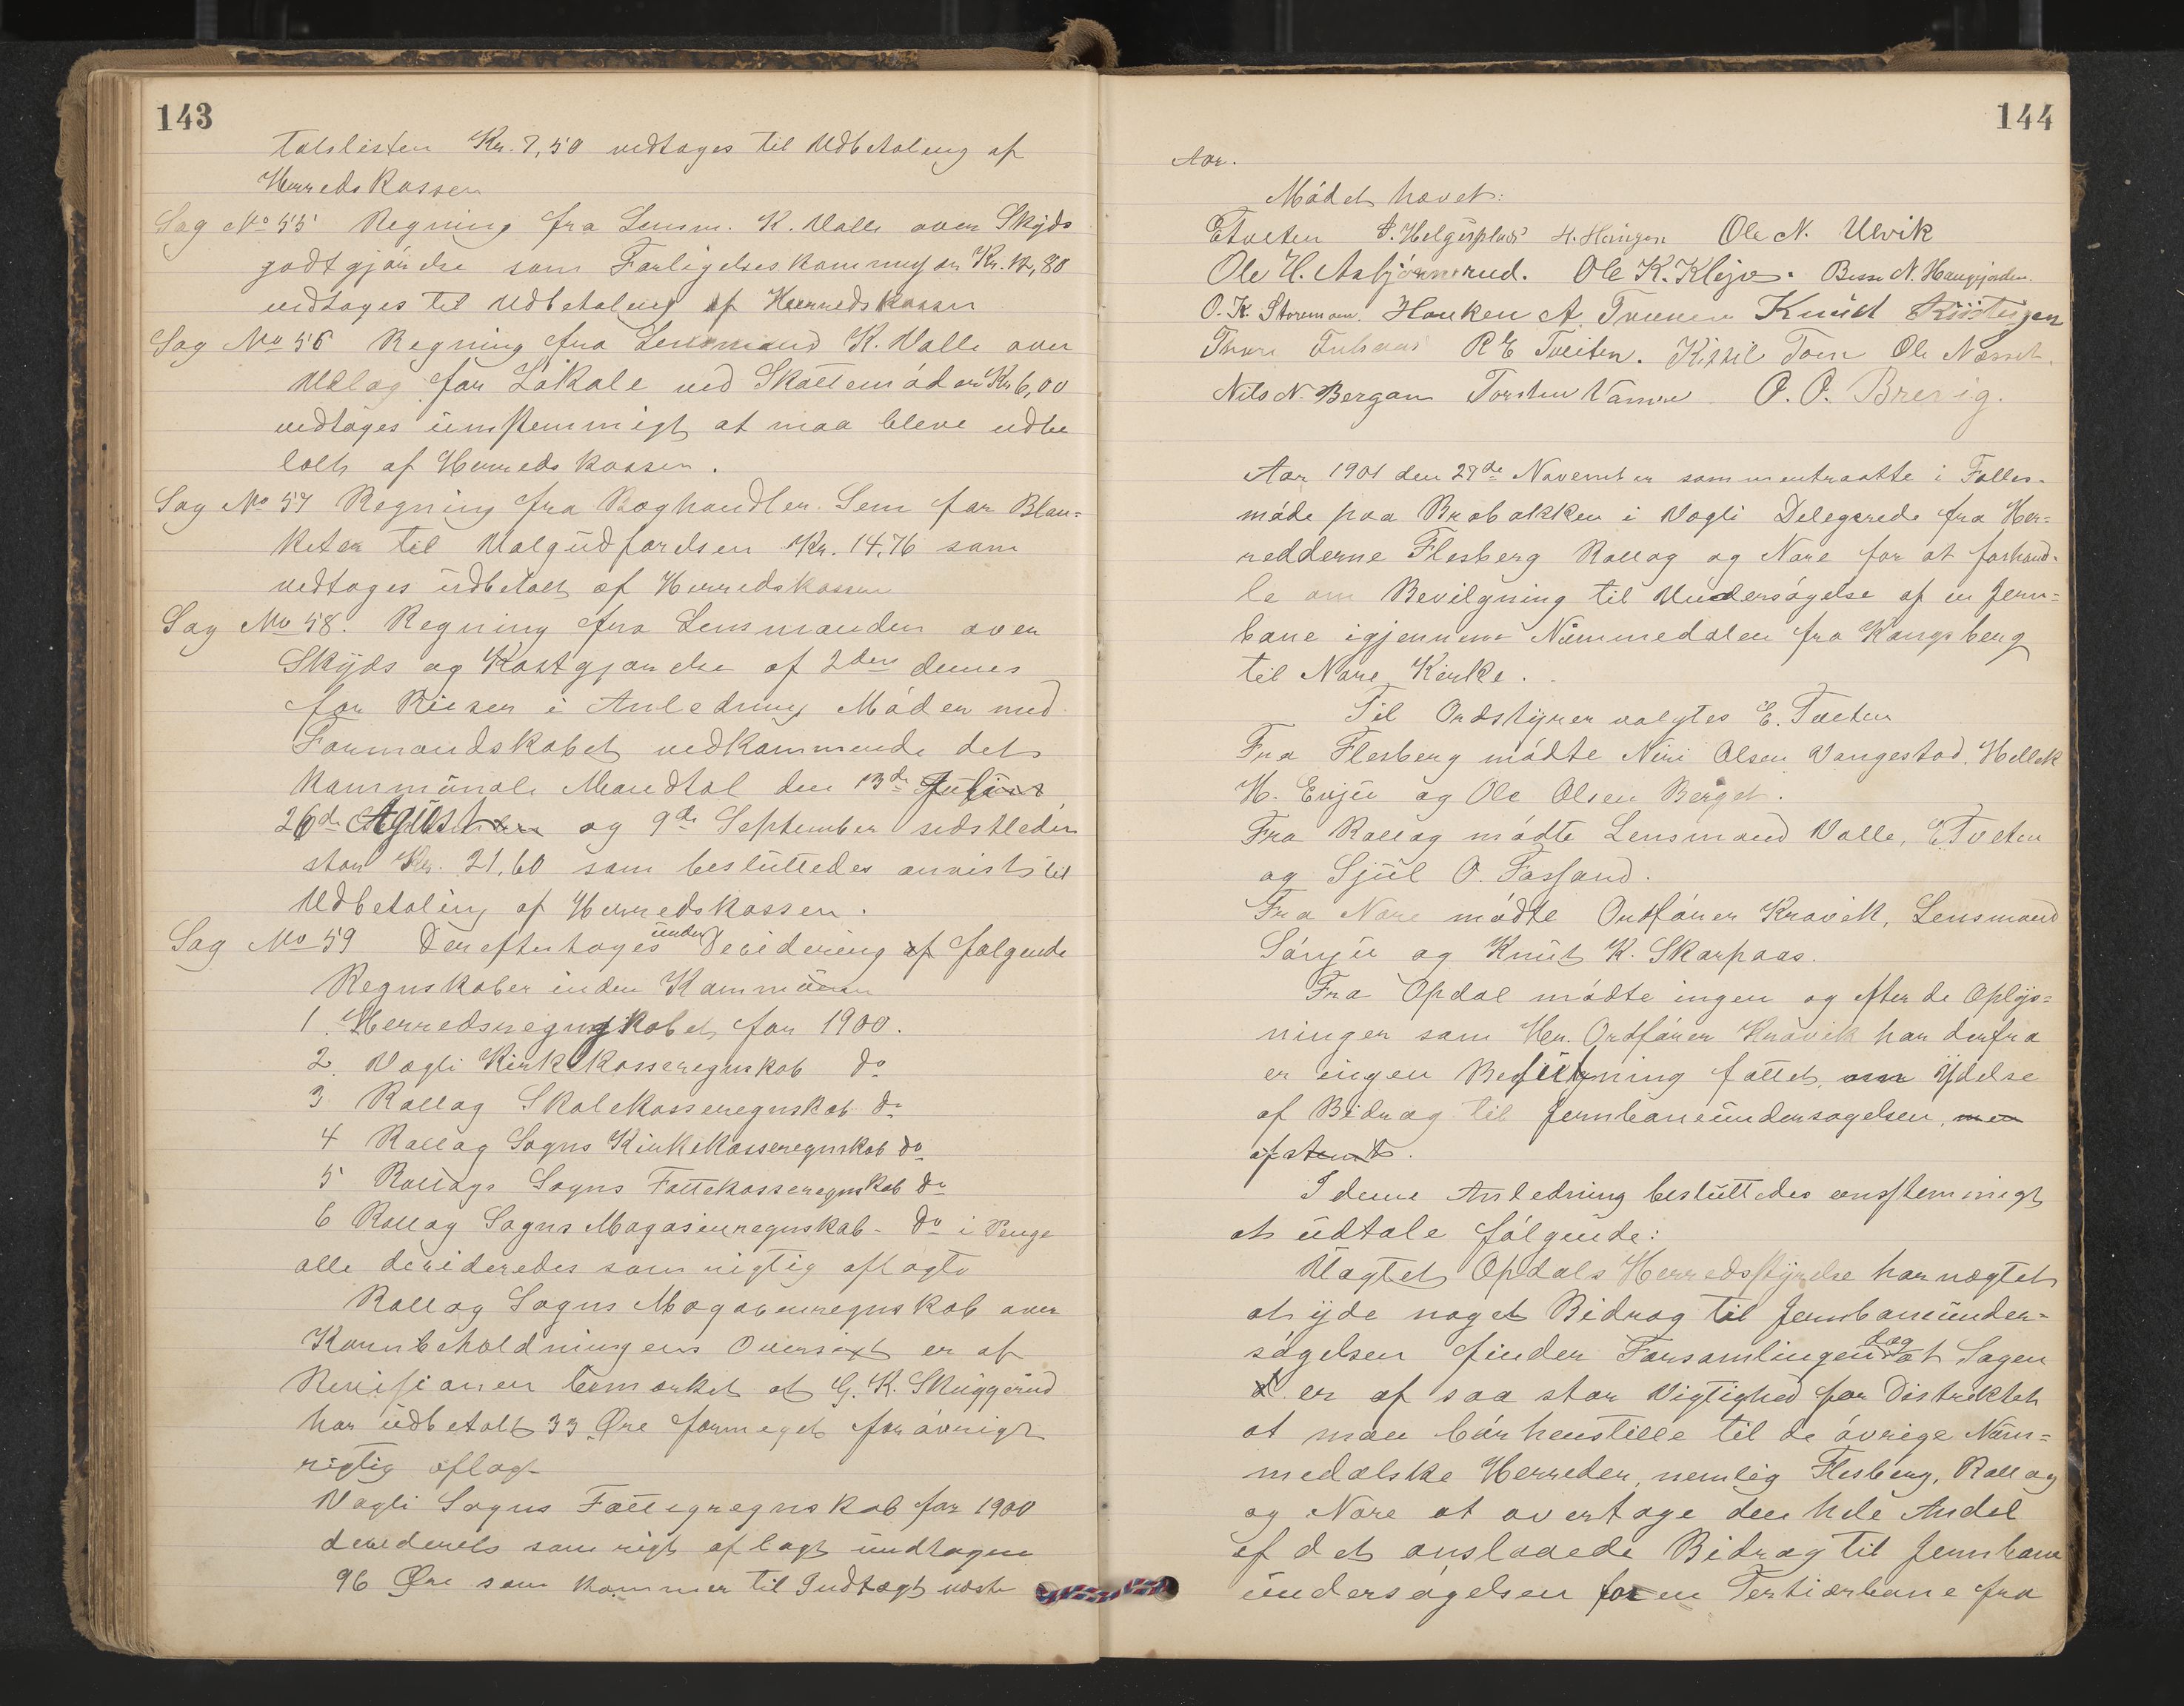 143
talslisten Kr. 7,50 vedtages til Udbetaling af
Herredskassen
Sag No 55 Regning fra Lensm. K. Valle over Skyds
godtgjörelse som Forligelseskommissær Kr. 12,80
vedtages til Udbetaling af Herredskassen
Sag No 56 Regning fra Lensmand K. Valle over
Udlæg for Lokale ved Skattemöder Kr 6,00
vedtages eenstemmigt at maa bleve udbe
talt af Herredskassen.
Sag No 57 Regning fra Boghandler Sem for Blan=
keter til Valgudförelsen Kr. 14,76 som
vedtages udbetalt af Herredskassen
Sag No 58. Regning fra Lensmanden over
Skyds og Kostgjörelse af 2den dennes
for Reiser i Anledning Möder med
Formandskabet vedkommende det
kommunale Mandtal den 13de Julius
26de Agust og 9de September sidstleden
stor Kr. 21,60 som besluttedes anvist til
Udbetaling af Herredskassen.
Sag No 59 Derefter toges under Decidering af følgende
Regnskaber inden Kommunen
1. Herredsregnskabet for 1900.
2. Vægli Kirkekasseregnskab do
3 Rollag Skolekasseregnskab do
4 Rollag Sogns Kirkekasseregnskab do
5 Rollags Sogns Fattekasseregnskab do
6 Rollag Sogns Magasinregnskab - do i Penge
alle decideredes som rigtig aflagte
Rollag Sogns Magasinregnskab over
Kornbeholdningens Oversigt er af
Revisionen bemærket at G. K. Skuggerud
har udbetalt 33 Øre formeget forövrigt
rigtig aflagt
Vægli Sogns Fattigregnskab for 1900
decideredes som rigt aflagt undtagen
96 Øre som kommer til Indtægt næste
144
Aar.
Mödet hævet:
ETveten S. Helgesplads H. Ole N. Ulvik
Ole H. Asbjörnsrud. Ole K. Klejve. N. Haugjorden.
O. K. Storemoen. Haaken A. Traaen Knud Kristensen
Thore R E Tveiten. Kittil Toen Ole Næsset.
Nils N. Bergan Torsten Vamre O. O. Brevig.
Aar 1901 den 27de November sammentraatte i Fælles-
möde paa Brobakken i Vægli Delegerede fra Her=
rederne Flesberg Rollag og Nore for at forhand-
le om Bevilgning til Undersögelse af en Jern=
bane igjennem Nummedalen fra Kongsberg
til Nore Kirke.
Til Ordstyrer valgtes E. Tveten
Fra Flesberg mödte Niri Olsen Vangestad, Hellek
H. Evju og Ole Olsen Berget.
Fra Rollag mödte Lensmand Valle, E.Tveten
og Sjul O. Fosland.
Fra Nore mödte Ordförer Kravik, Lensmand
Sönju og Knut K. Skarpaas.
Fra Opdal mödte ingen og efter de Oplys=
ninger som Hr. Ordförer Kravik har derfra
er ingen Beslutning fattet, om Ydelse
af Bidrag til Jernbaneundersøgelsen, men
afstemt.
I denne Anledning besluttedes eenstemmigt
at udtale fölgende:
Uagtet Opdals Herredsstyrelse har nægtet
at yde noget Bidrag til Jernbaneunder=
sögelsen finder Forsamlingen dog at Sagen
er af saa stor Vigtighed for Distriktet
at man bör henstille til de övrige Num=
medalske Herreder, nemlig Flesberg, Rollag
og Nore at overtage den hele Andel
af det anslaaede Bidrag til Jernbane
undersögelsen for en Tertiærbane fra